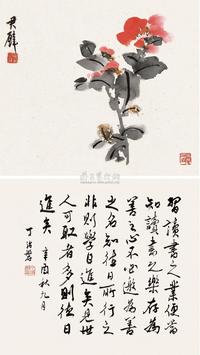 君璧
習讀書之業便當
知讀書之樂存為
善之心不必邀為善
之名知往日所行之
非則學日進矣見世
人可取者多則德日
進矣 辛酉秋九月
丁治磐